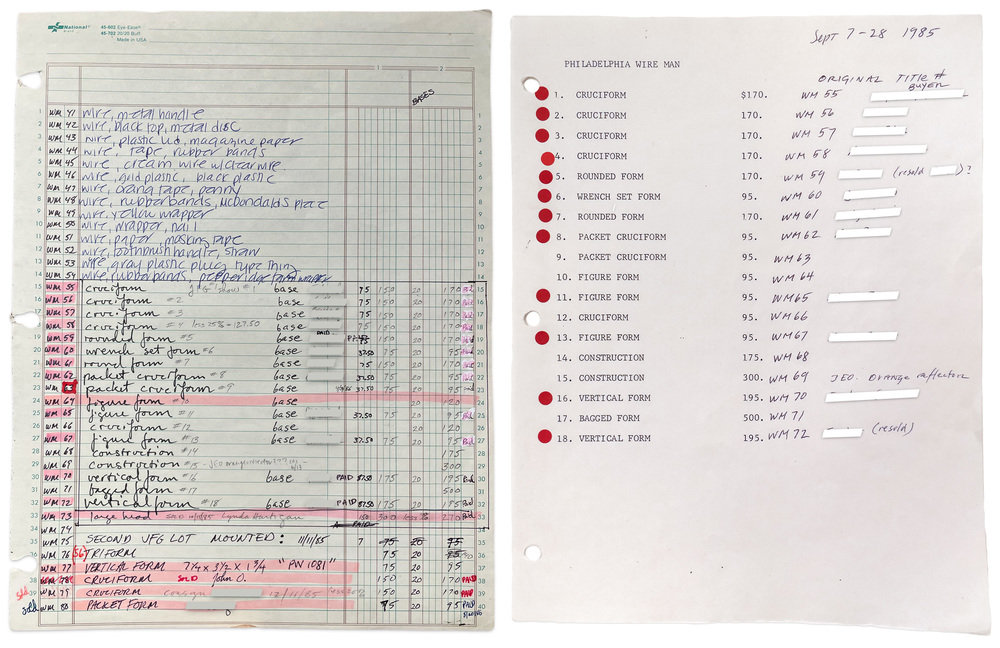 National
45-602 Eye-Ease
45-702 20/20 Buff
Made in USA
1 2
BASES
1 WM 41 wire, metal handle 1
2 WM 42 wire, black top, metal disc 2
3 WM 43 wire, plastic lid, magazine paper 3
4 WM 44 wire, tape, rubber bands 4
5 WM 45 wire, cream wire w/clear wire 5
6 WM 46 wire, gold plastic, black plastic 6
7 WM 47 wire, orang tape, penny 7
8 WM 48 wire, rubberbands, McDonalds piece 8
9 WM 49 wire, yellow wrapper 9
10 WM 50 wire, wrapper, nail 10
11 WM 51 wire, paper, masking tape 11
12 WM 52 wire, toothbrush handle, straw 12
13 WM 53 wire, gray plastic plug type thing 13
14 WM 54 wire, rubberbands, pepperidge farm wrapper 14
15 WM 55 cruciform #1 base 75 150 20 170 Pd 15
16 WM 56 cruciform #2 base 75 150 20 170 16
17 WM 57 cruciform #3 base 75 150 20 170 17
18 WM 58 cruciform #4 less 25% = 127.50 base 75 150 20 170 18
19 WM 59 rounded form #5 base PAID 150 20 170 19
20 WM 60 wrench set form #6 base 37.50 75 20 95 20
21 WM 61 round form #7 base 75 150 20 170 21
22 WM 62 packet cruciform #8 base 37.50 75 20 95 22
23 WM packet cruciform #9 base 37.50 75 20 95 23
24 WM 64 figure form #10 base 20 120 24
25 WM 65 figure form #11 base 37.50 75 20 95 Pd 25
26 WM 66 cruciform #12 base 20 120 26
27 WM 67 figure form #13 base 37.50 75 20 95 Pd 27
28 WM 68 construction #14 175 28
29 WM 69 construction #15 - JEO 300 29
30 WM 70 vertical form #16 base PAID 87.50 175 20 195 Pd 30
31 WM 71 bagged form #17 500 31
32 WM 72 vertical form #18 base PAID 87.50 175 20 195 Pd 32
33 WM 73 large head SOLD Lynda Hartigan 150 300 less 270 Pd 33
34 WM 74 PAID 34
35 WM 75 SECOND VFG LOT MOUNTED: 11/11/85 7 75 20 95 35
36 WM 76 (56) TRIFORM 75 20 36
37 WM 77 VERTICAL FORM 7 1/4 x 3 1/2 x 1 3/4 "PW 1081" 75 20 95 37
38 WM 78 CRUCIFORM SOLD John O. 150 20 170 PAID 38
sold 39 WM 79 CRUCIFORM consign 12/11/85 150 20 170 PAID 39
sold WM 80 PACKET FORM 75 20 95 PAID 40
Sept 7-28 1985
PHILADELPHIA WIRE MAN
ORIGINAL TITLE #
BUYER
1. CRUCIFORM $170. WM 55
2. CRUCIFORM 170. WM 56
3. CRUCIFORM 170. WM 57
4. CRUCIFORM 170. WM 58
5. ROUNDED FORM 170. WM 59 (resold )?
6. WRENCH SET FORM 95. WM 60
7. ROUNDED FORM 170. WM 61
8. PACKET CRUCIFORM 95. WM 62
9. PACKET CRUCIFORM 95. WM 63
10. FIGURE FORM 95. WM 64
11. FIGURE FORM 95. WM 65
12. CRUCIFORM 95. WM 66
13. FIGURE FORM 95. WM 67
14. CONSTRUCTION 175. WM 68
15. CONSTRUCTION 300. WM 69 JEO. Orange reflectors
16. VERTICAL FORM 195. WM 70
17. BAGGED FORM 500. WM 71
18. VERTICAL FORM 195. WM 72 (resold)